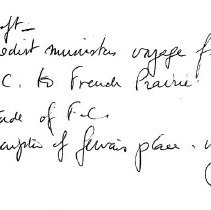 oft –
edist ministers voyage f
C. to French Prairie.
ade of F.C.
cription of Gervais place.
(